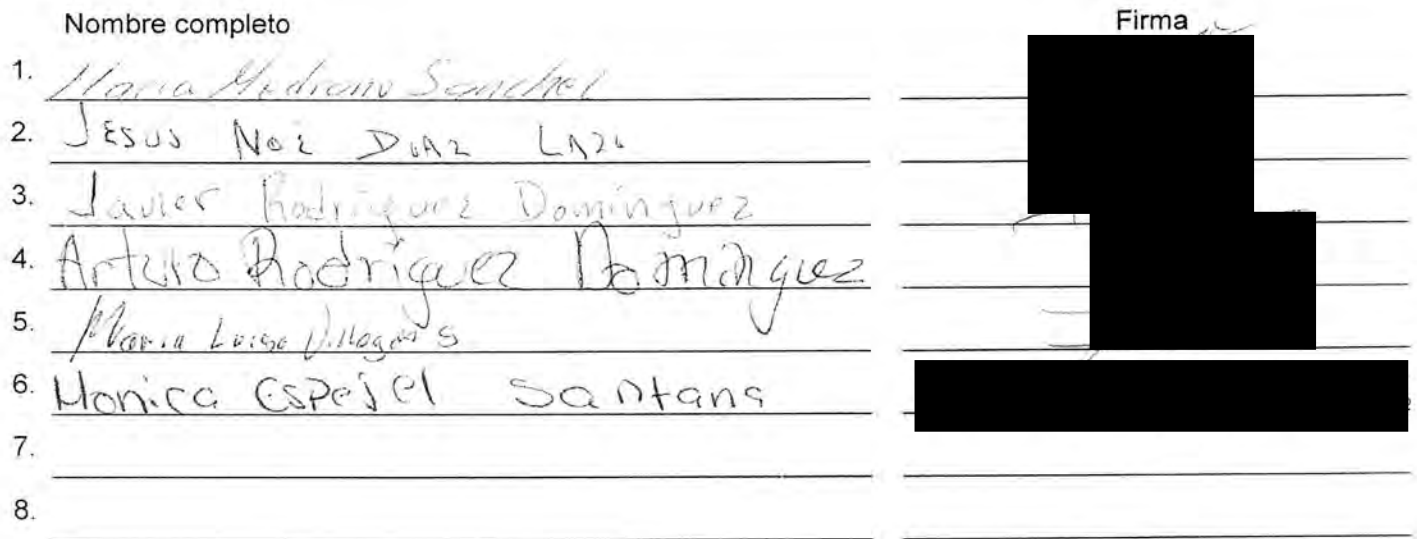 Nombre completo Firma
1. Maria Medrano Sanchez
2. JESUS NOE DIAZ LAZO
3. Javier Rodriguez Dominguez
4. Arturo Rodriguez Dominguez
5. Maria Luisa Villagas
6. Monica Espejel Santana
7.
8.